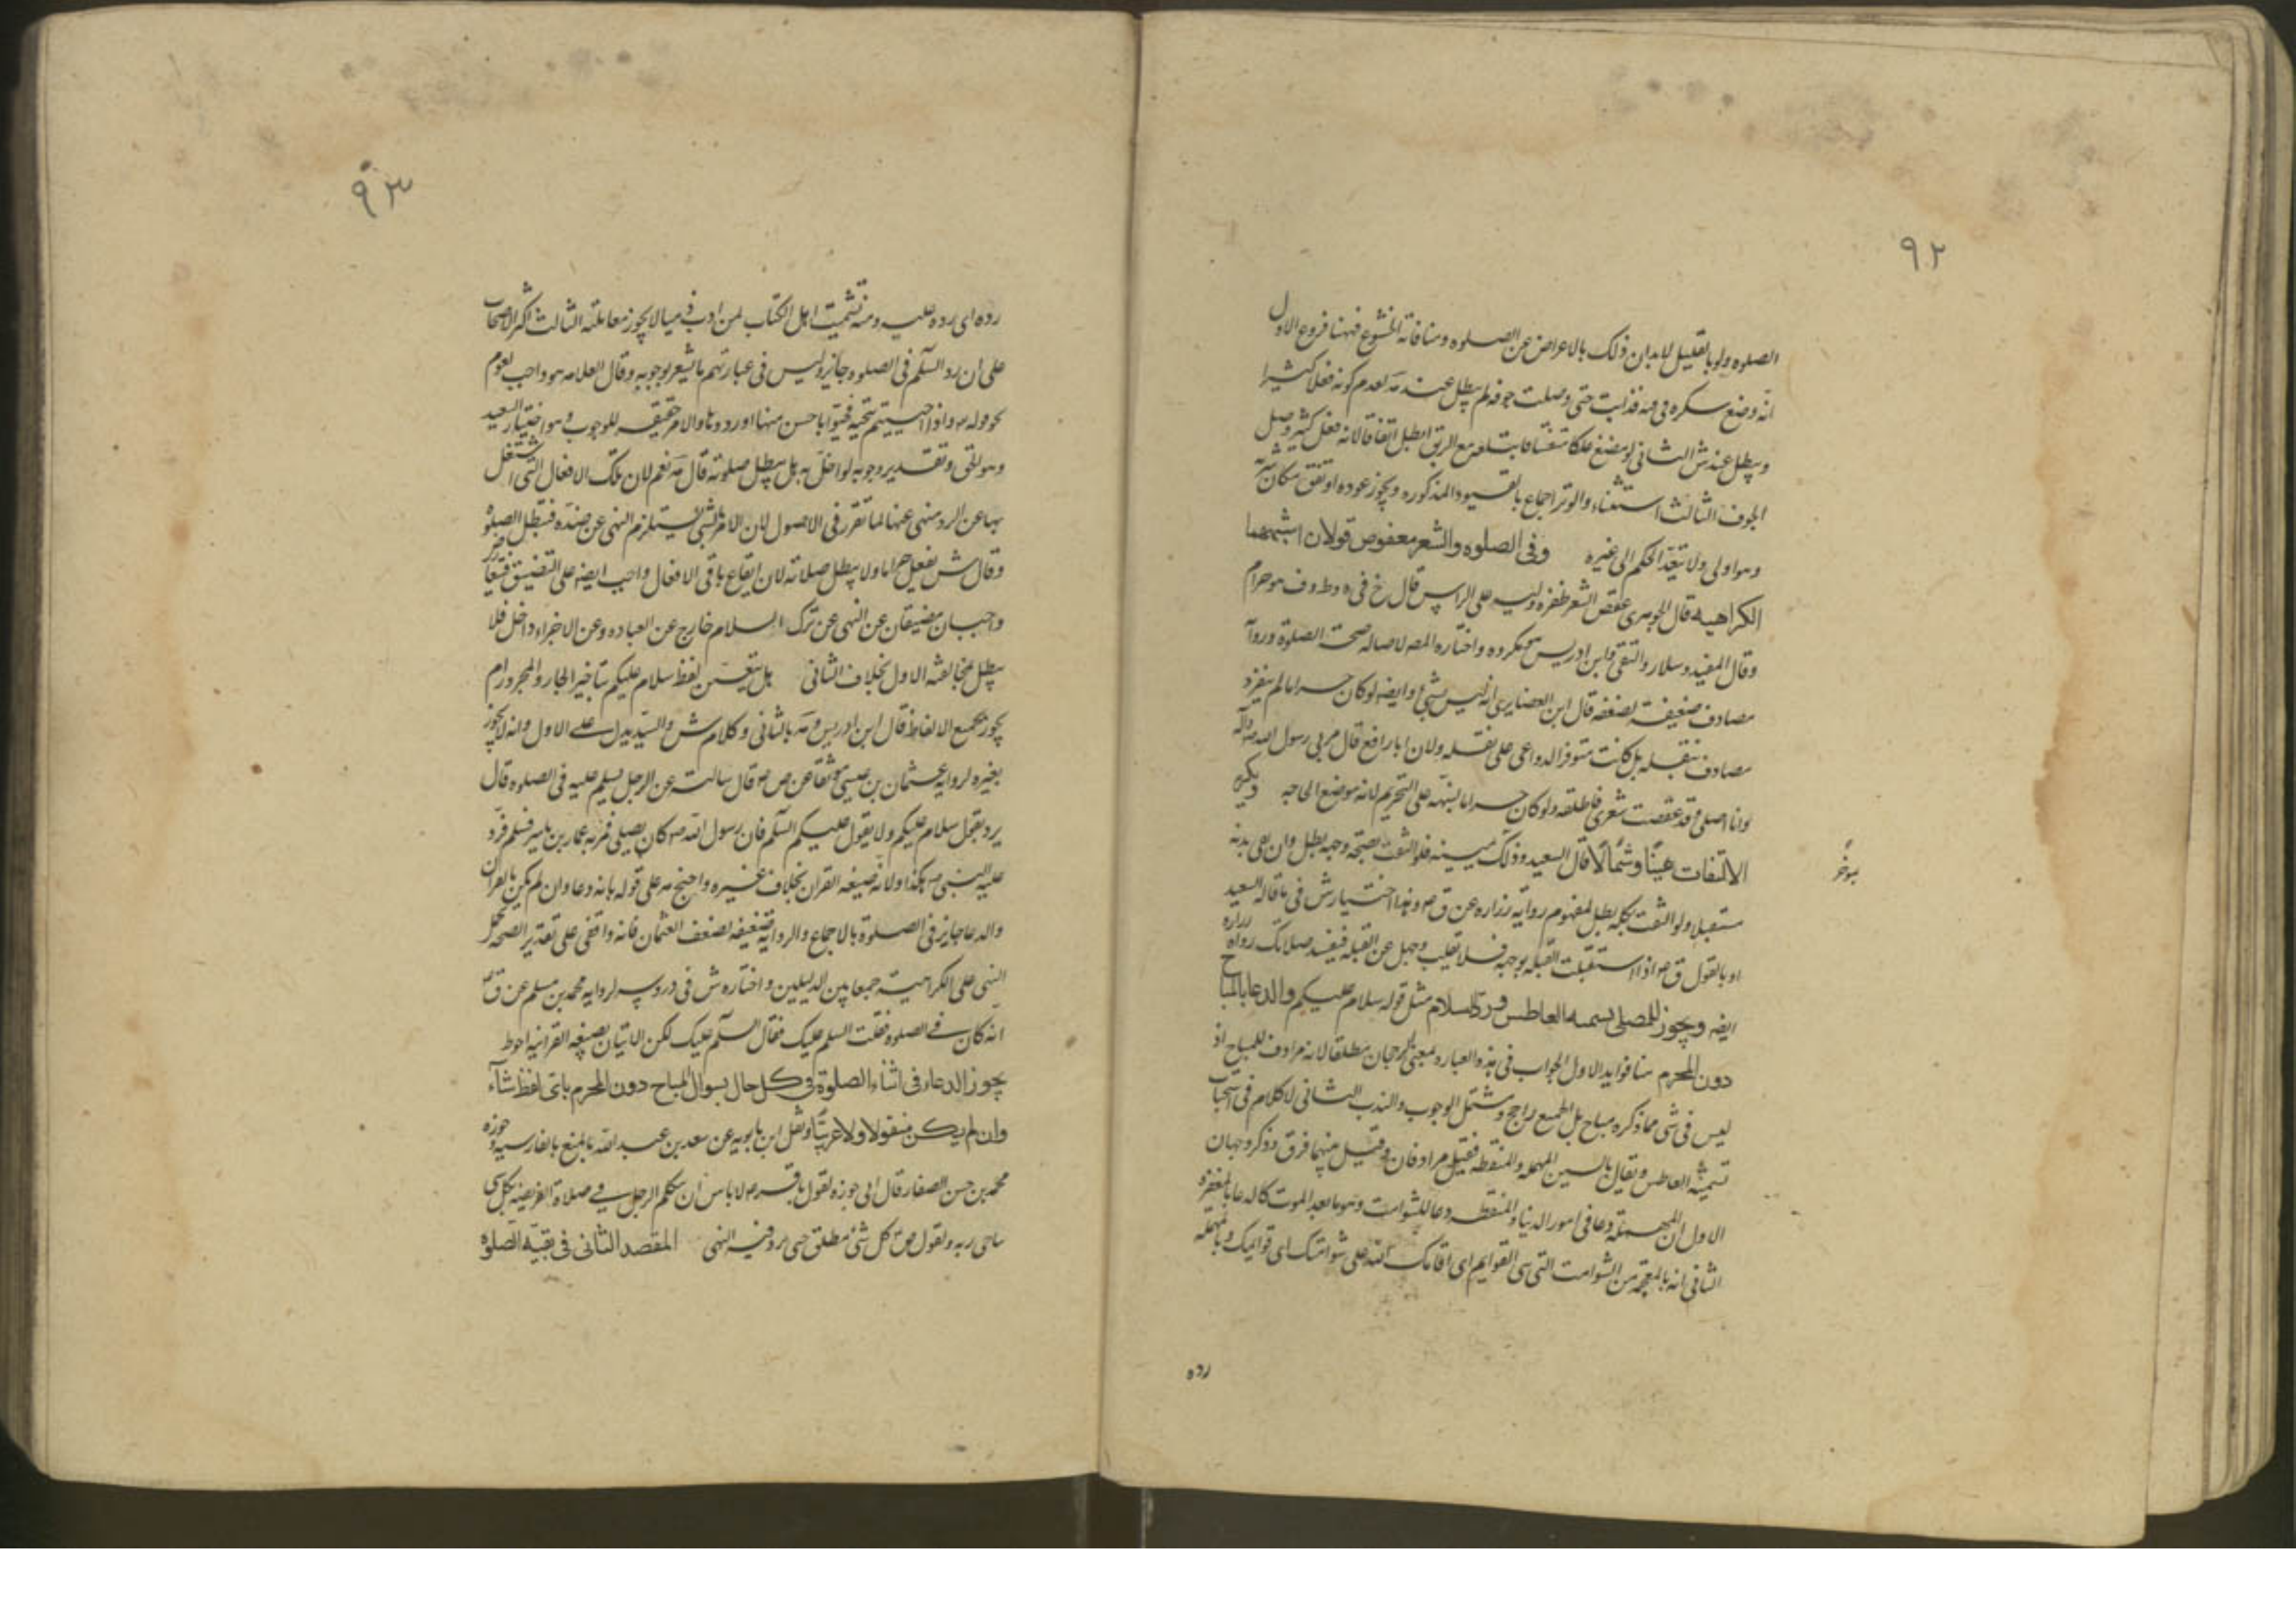 ٩٢
الصلوه ولو بالقليل لايذان ذلك بالاعراض عن الصلوه ومنافاته الخشوع فهنا فروع الاول
انه وضع سكره فى فيه فذابت حتى وصلت جوفه لم يبطل عند مه لعدم كونه فعلا كثيرا
ويبطل عند ش الثانى لو مضغ علكا متفتتا فابتلعه مع الريق ابطل اتفاقا لانه فعل كثير وصل
الجوف الثالث استثناء والوتر اجماع بالقيود المذكوره ويجوز عوده او تفق مكان شربه
وهو اولى ولا يتعد الحكم الى غيره وفى الصلوه والشعر معقوص قولان اشبههما
الكراهيه قال الجوهرى عقص الشعر ظفره وليه على الراس قال خ فى يه وط وف هو حرام
وقال المفيد وسلار والتقى وابن ادريس مكروه واختاره المص لاصاله صحت الصلوة وروايه
مصادف ضعيفة لضعفه قال ابن الغضايرى انه ليس بشئ وايضا لو كان حراما لم ينفرد
مصادف بنقله بل كانت متوفر الدواعى على نقله ولان ابا رافع قال مر بى رسول الله صلى الله عليه وآله
وانا اصلى وقد عقصت شعرى فاطلقه ولو كان حراما لنبهه على التحريم لانه موضع الحاجه ويكره
الالتفات يمينا وشمالا قال السعيد وذلك بعينه فلو التفت بصفحة وجهه بطل وان بقى بدنه
مستقبلا ولو التفت بكله بطل لمفهوم روايه زراره عن ق م وهذا اختيار ش فى ما قاله السعيد
او بالقول ق م اذا استقبلت القبله بوجهك فلا تقلب وجهك عن القبله فيفسد صلاتك رواه زراره
ايضا ويجوز للمصلى تسميه العاطس ورد السلام مثل قوله سلام عليكم والدعا بالمباح
دون المحرم هنا فوايد الاول الجواب فى هذه العباره بمعنى الرجحان مطلقا لانه مرادف للمباح اذ
ليس فى شى مما ذكره مباح بل الجميع راجح ويشتمل الوجوب والندب الثانى لا كلام فى استحباب
تسميه العاطس ويقال بالسين المهمله والمنقطه فقيل مرادفان وقيل بينهما فرق وذكر وجهان
الاول ان المهملة دعا فى امور الدنيا والمنقطه دعا للشوامت وهو ما بعد الموت كالدعا بالمغفره
الثانى انه بالمعجمه من الشوامت التى هى القوايم اى اقامك الله على شوامتك اى قوايمك وبالمهمله
رده
٩٣
رده اى رده عليه ومنه تشميت اهل الكتاب لمن ادب فيما لا يجوز معاملته الثالث اكثر الاصحاب
على ان رد السلم فى الصلوه جايز وليس فى عبارتهم ما يشعر بوجوبه وقال العلامه هو واجب لعموم
قوله م واذا حييتم بتحية فحيوا باحسن منها او ردوها والامر حقيقه للوجوب وهو اختيار السعيد
وهو لقى وتقدير وجوبه لو اخل به بل يبطل صلوته قال مه نعم لان تلك الافعال التى اشتغل
بها عن الرد منهى عنها لما تقرر فى الاصول لان الامر بالشى يستلزم النهى عن ضده فتبطل الصلوه
وقال ش يفعل حراما ولا يبطل صلاته لان ايقاع باقى الافعال واجب ايضا على التضيق فتعارض
واجبان مضيقان عن النهى عن ترك السلام خارج عن العباده وعن الاجزاء داخل فلا
يبطل بمخالفته الاول بخلاف الثانى هل يتعين لفظ سلام عليكم بتاخير الجار والمجرور ام
يجوز بجميع الالفاظ قال ابن ادريس ومه بالثانى وكلام ش والسيد يدل على الاول وانه لا يجوز
بغيره لروايه عثمان بن عيسى موثقا عن ص م قال سالته عن الرجل يسلم عليه فى الصلوه قال
يرد بقول سلام عليكم ولا يقول عليكم السلم فان رسول الله ص كان يصلى فمر به عمار بن ياسر فسلم فرد
عليه النبى ص هكذا ولانه صيغه القران بخلاف غيره واحتج مه على قوله بانه دعا وان لم يكن بالقران
والدعا جايز فى الصلوة بالاجماع والروايه ضعيفه لضعف العثمان فانه واقفى على تقدير الصحه يحمل
النهى على الكراهية جمعا بين الدليلين واختاره ش فى دروسه لروايه محمد بن مسلم عن ق م
انه كان فى الصلوه فقلت السلم عليك فقال السلم عليك لكن الاتيان بصيغه القرانيه احوط
يجوز الدعاء فى اثناء الصلوة فى كل حال بسوال المباح دون المحرم باى لفظ شاء
وان لم يكن منقولا ولا عربيا ونقل ابن بابويه عن سعد بن عبد الله بالمنع بالفارسيه وجوزه
محمد بن حسن الصفار قال انى جوزه لقول باقر م لا باس ان يتكلم الرجل فى صلاة الفريضه بكل شى
يناجى ربه ولقول ص م كل شئ مطلق حتى يرد فيه النهى المقصد الثانى فى بقية الصلوه